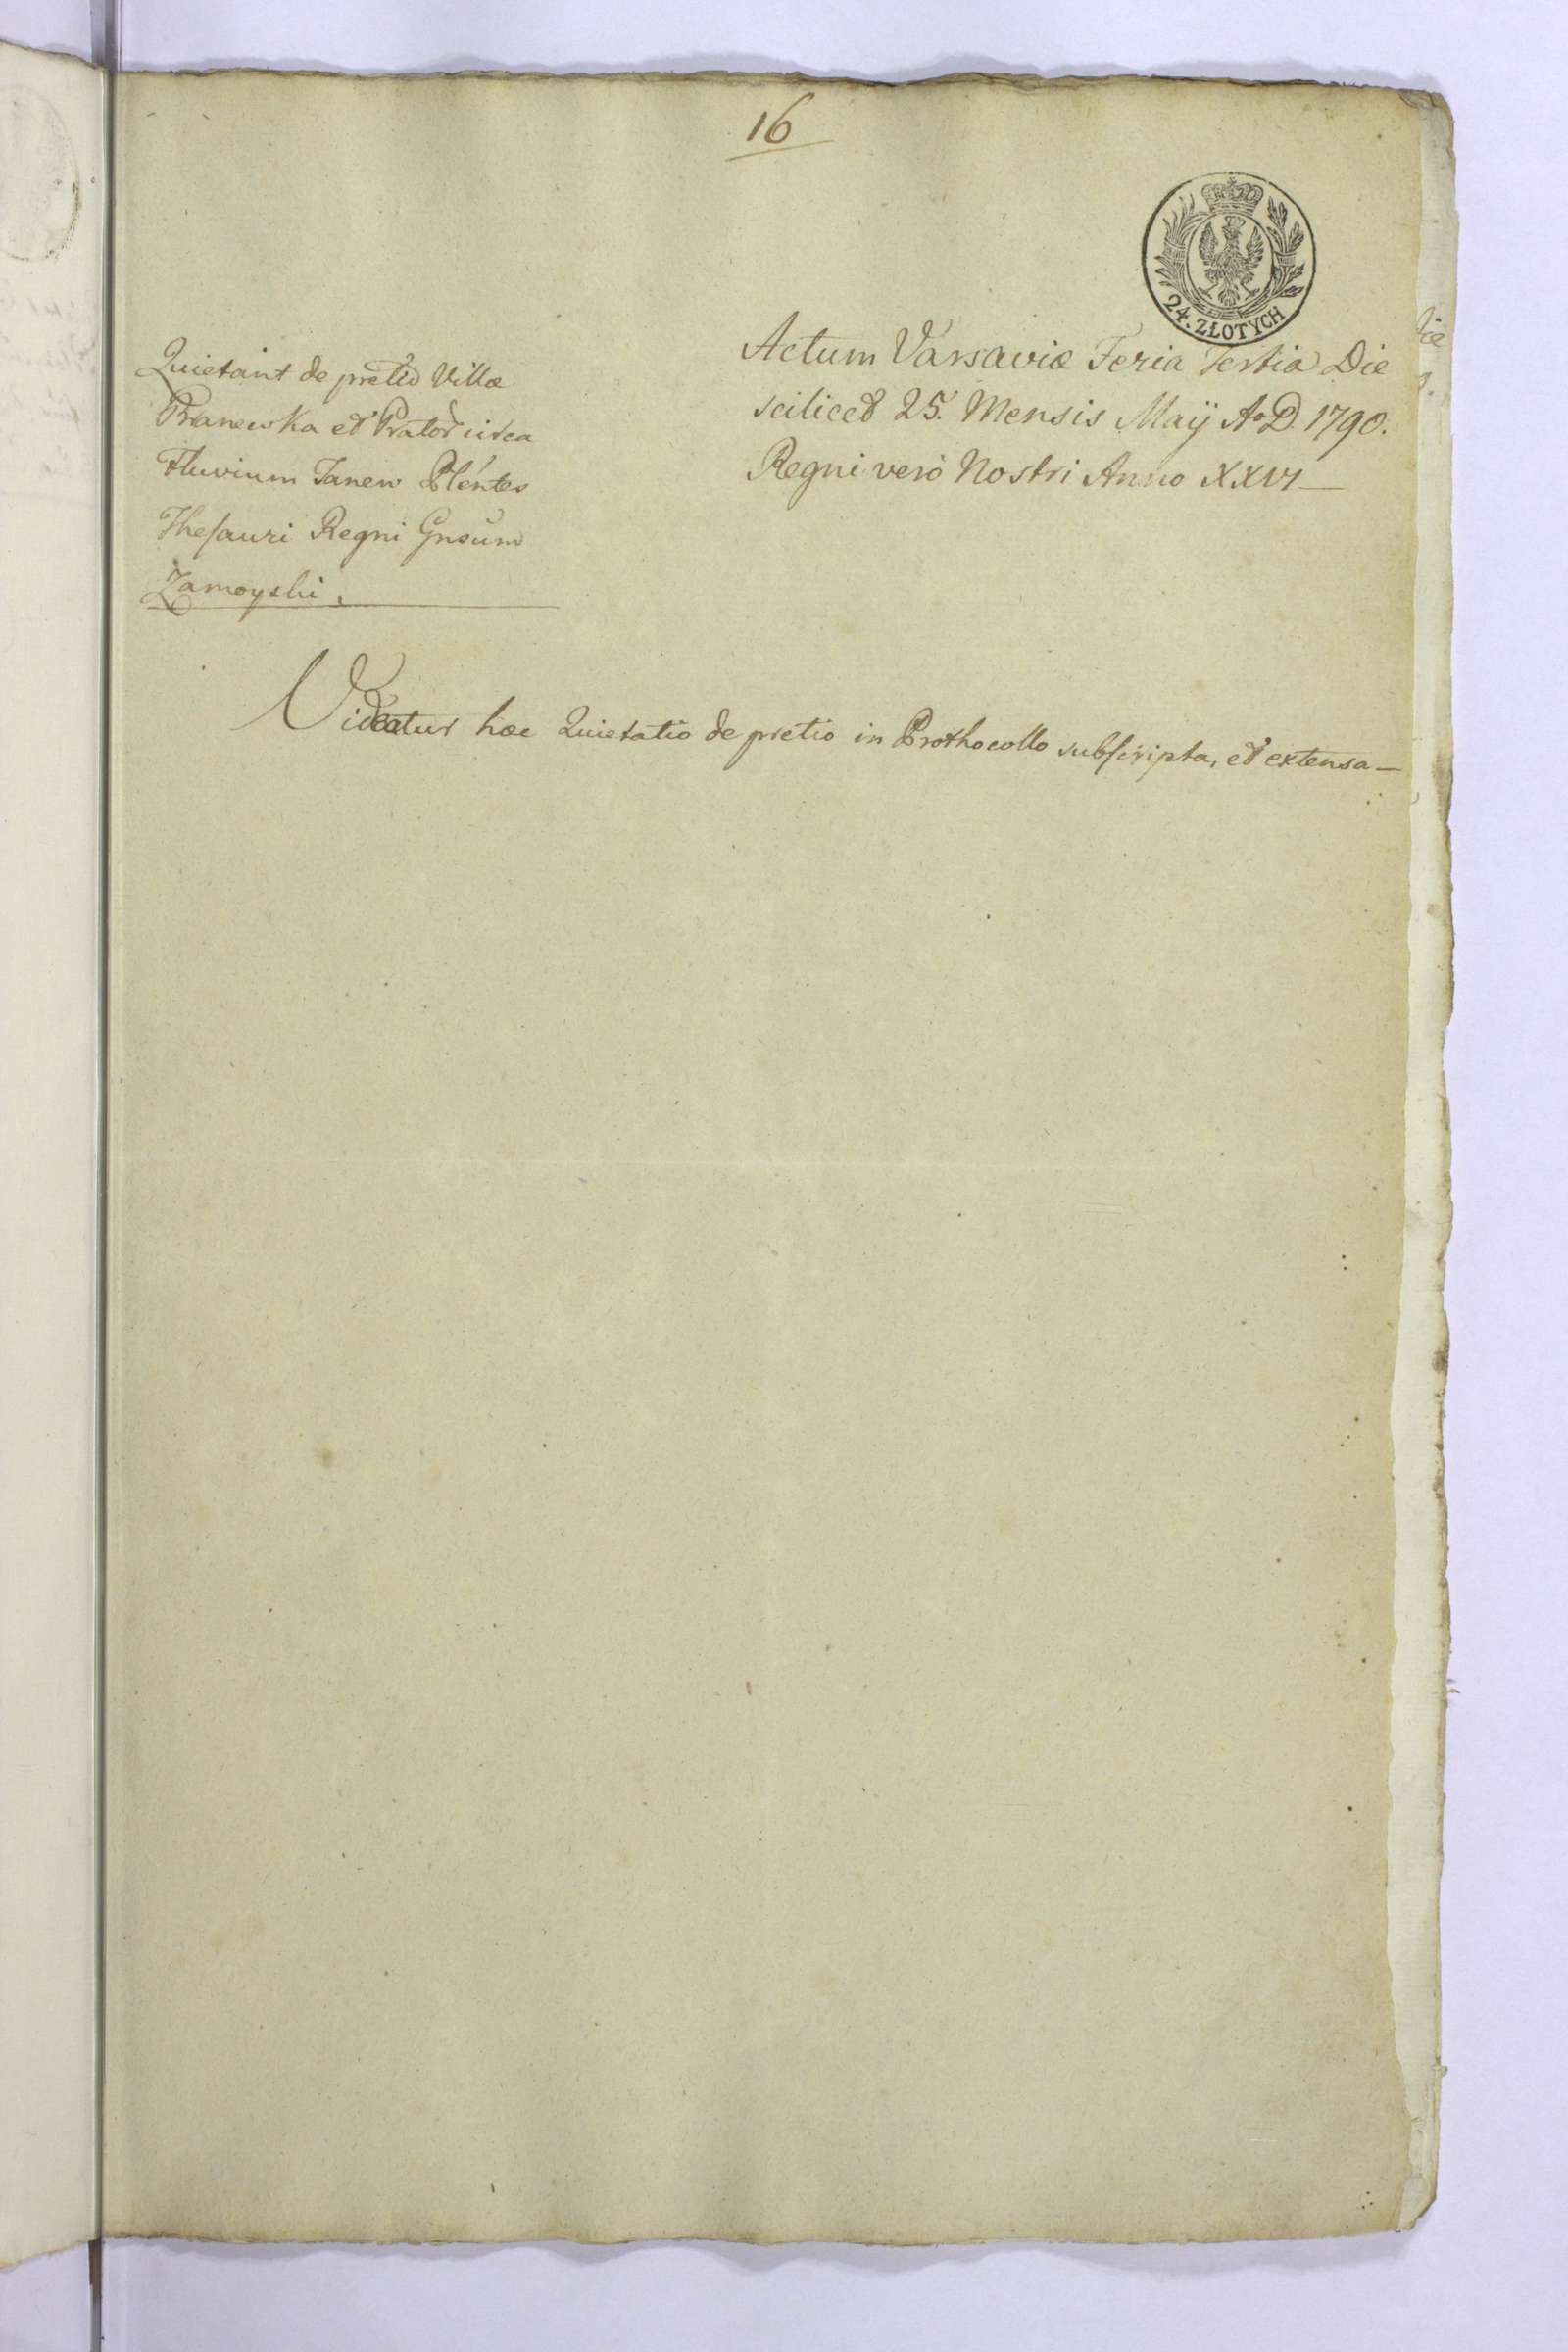 16
24. ZŁOTYCH
Actum Varsaviæ Feria Tertia Die
scilicet 25. Mensis Maÿ Ao D. 1790.
Regni verò Nostri Anno XXVI
Quietant de pretio Villæ
et Prator circa
Fluvium Tanew Plentes
Thesauri Regni Gnsum
Zamoyski.
Videatur hæc Quietatio de pretio in Prothocollo subscripta, et extensa—